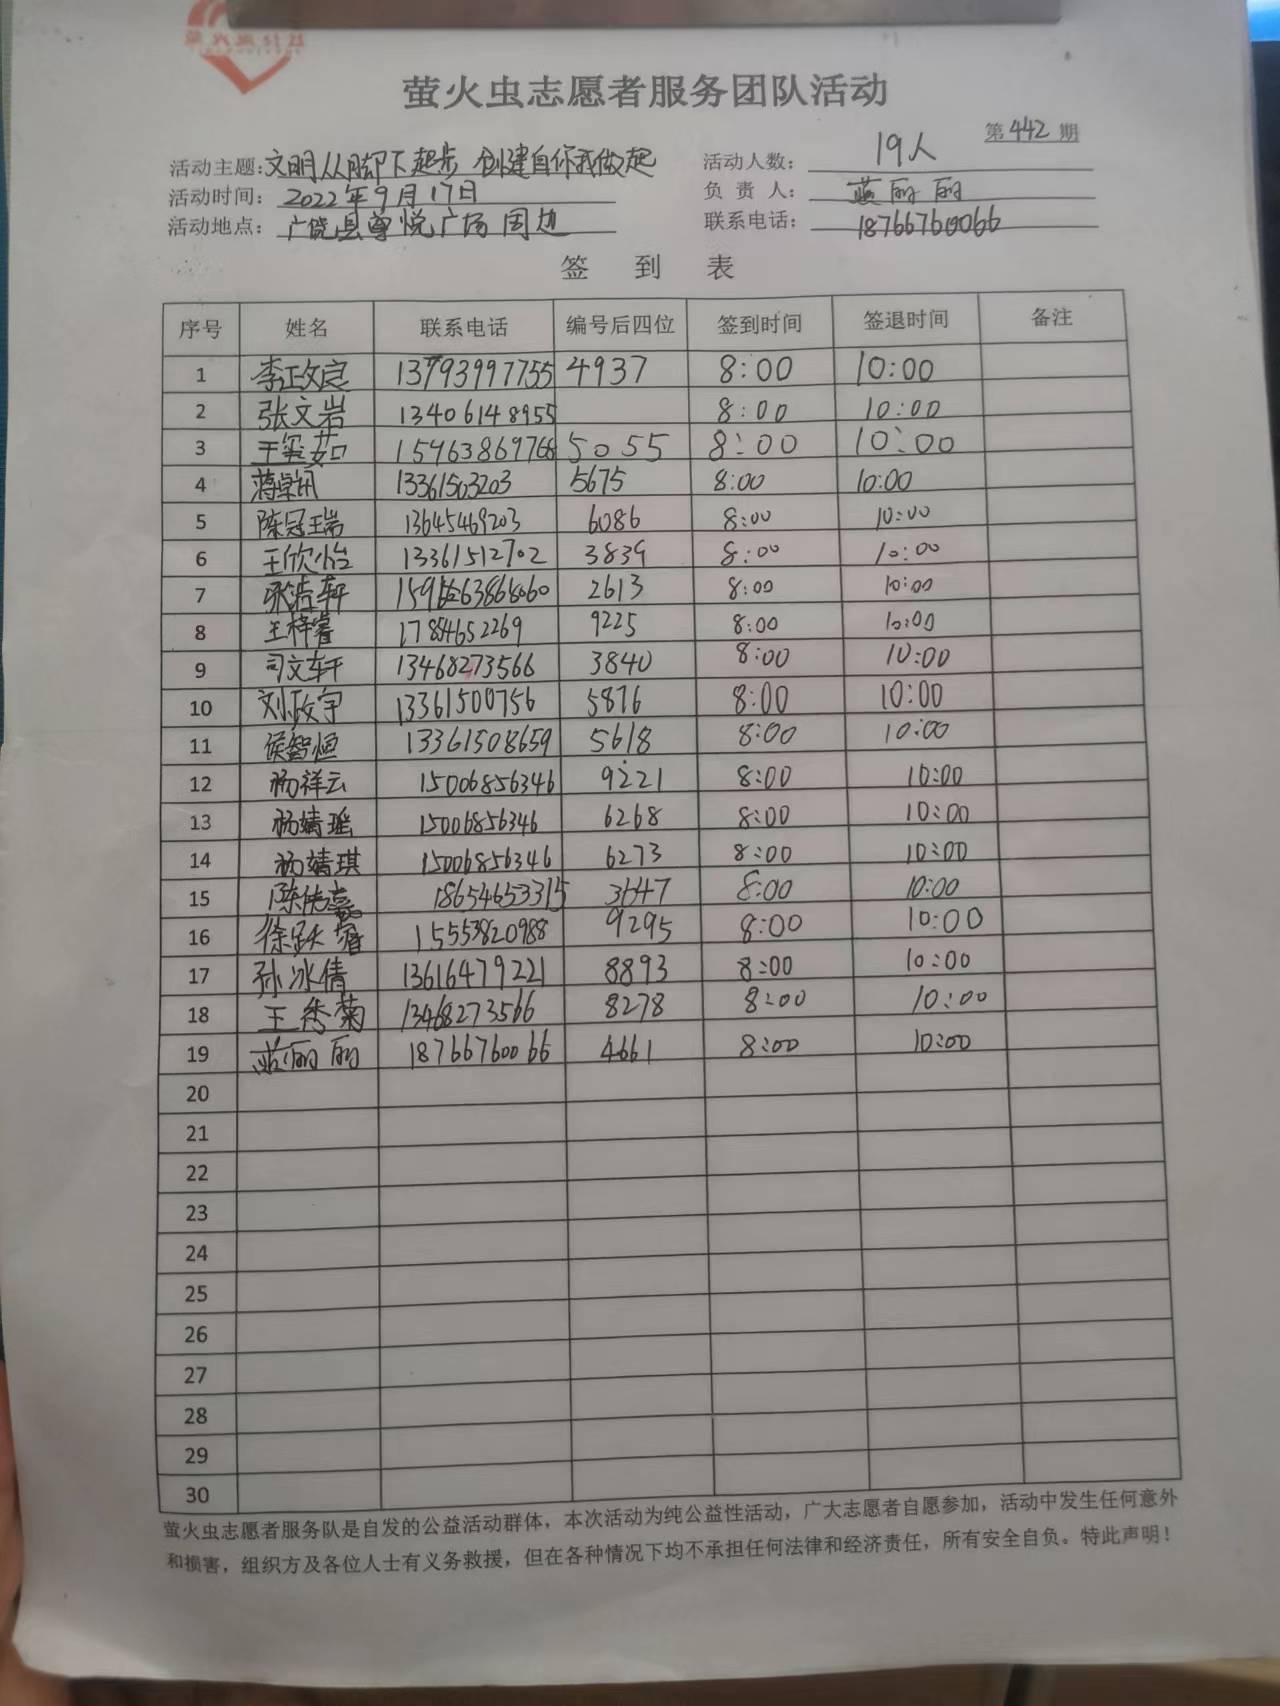 萤火虫志愿者服务团队活动
第442期
活动主题:文明从脚下起步 创建自你我做起 活动人数: 19人
活动时间: 2022年9月17日 负责人: 蓝丽丽
活动地点: 广饶县尊悦广场周边 联系电话: 18766760066
签到表
序号 姓名 联系电话 编号后四位 签到时间 签退时间 备注
1 李政良 13793997755 4937 8:00 10:00
2 张文岩 13406148955 8:00 10:00
3 王玺茹 15963869768 5055 8:00 10:00
4 13361503203 5675 8:00 10:00
5 陈冠瑞 13645469203 6086 8:00 10:00
6 王欣怡 13361512702 3839 8:00 10:00
7 张浩轩 2613 8:00 10:00
8 王梓睿 17854652269 9225 8:00 10:00
9 司文轩 13468273566 3840 8:00 10:00
10 刘政宇 13361500756 5876 8:00 10:00
11 侯智恒 13361508659 5618 8:00 10:00
12 杨祥云 15006856346 9221 8:00 10:00
13 杨婧瑶 15006856346 6268 8:00 10:00
14 杨婧琪 15006856346 6273 8:00 10:00
15 18654653315 8:00 10:00
16 15553820988 9295 8:00 10:00
17 孙冰倩 13616479221 8893 8:00 10:00
18 王秀菊 13468273566 8278 8:00 10:00
19 蓝丽丽 18766760066 4661 8:00 10:00
20
21
22
23
24
25
26
27
28
29
30
萤火虫志愿者服务队是自发的公益活动群体，本次活动为纯公益性活动，广大志愿者自愿参加，活动中发生任何意外
和损害，组织方及各位人士有义务救援，但在各种情况下均不承担任何法律和经济责任，所有安全自负。特此声明！